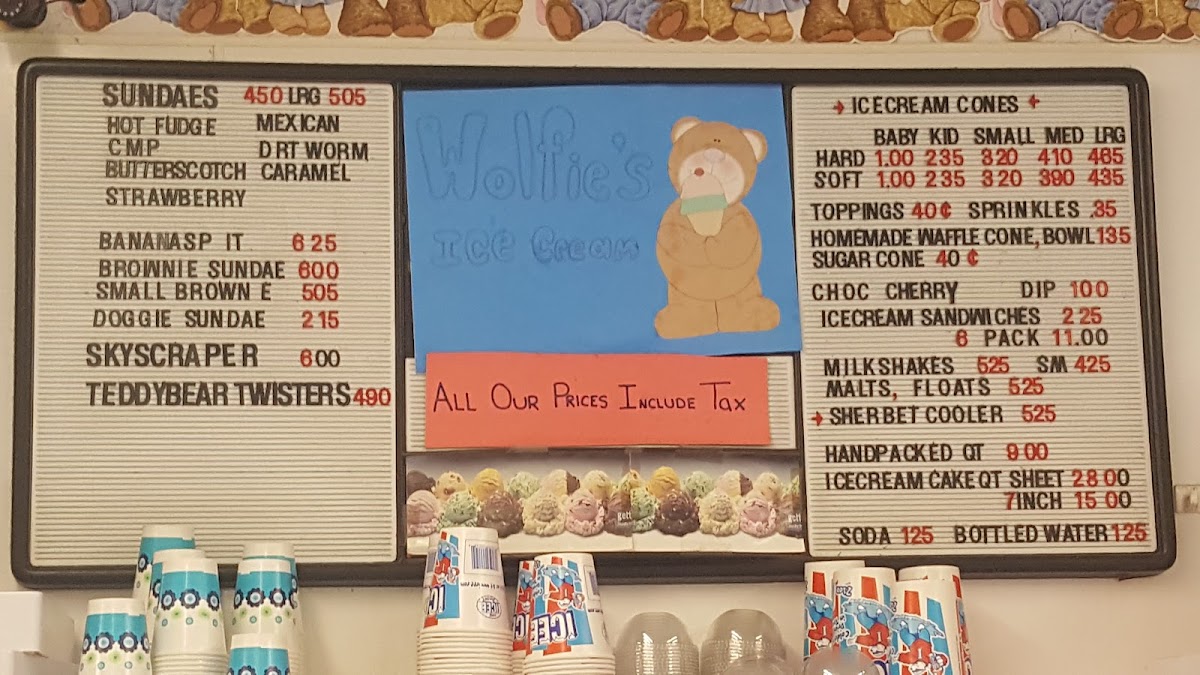 SUNDAES 450 LRG 505
HOT FUDGE MEXICAN
CMP D RT WORM
BUTTERSCOTCH CARAMEL
STRAWBERRY
BANANASP IT 6 25
BROWNIE SUNDAE 600
SMALL BROWN E 505
DOGGIE SUNDAE 2 15
SKYSCRAPER 600
TEDDYBEAR TWISTERS 490
Wolfie's
Ice Cream
ALL OUR PRICES INCLUDE TAX
ICECREAM CONES
BABY KID SMALL MED LRG
HARD 1.00 235 320 410 465
SOFT 1.00 235 320 390 435
TOPPINGS 40¢ SPRINKLES .35
HOMEMADE WAFFLE CONE, BOWL 135
SUGAR CONE 40 ¢
CHOC CHERRY DIP 100
ICECREAM SANDWICHES 2 25
6 PACK 11.00
MILKSHAKES 525 SM 425
MALTS, FLOATS 525
SHERBET COOLER 525
HANDPACKED QT 9 00
ICECREAM CAKE QT SHEET 28 00
7INCH 15 00
SODA 125 BOTTLED WATER 125
ICEE
ICEE